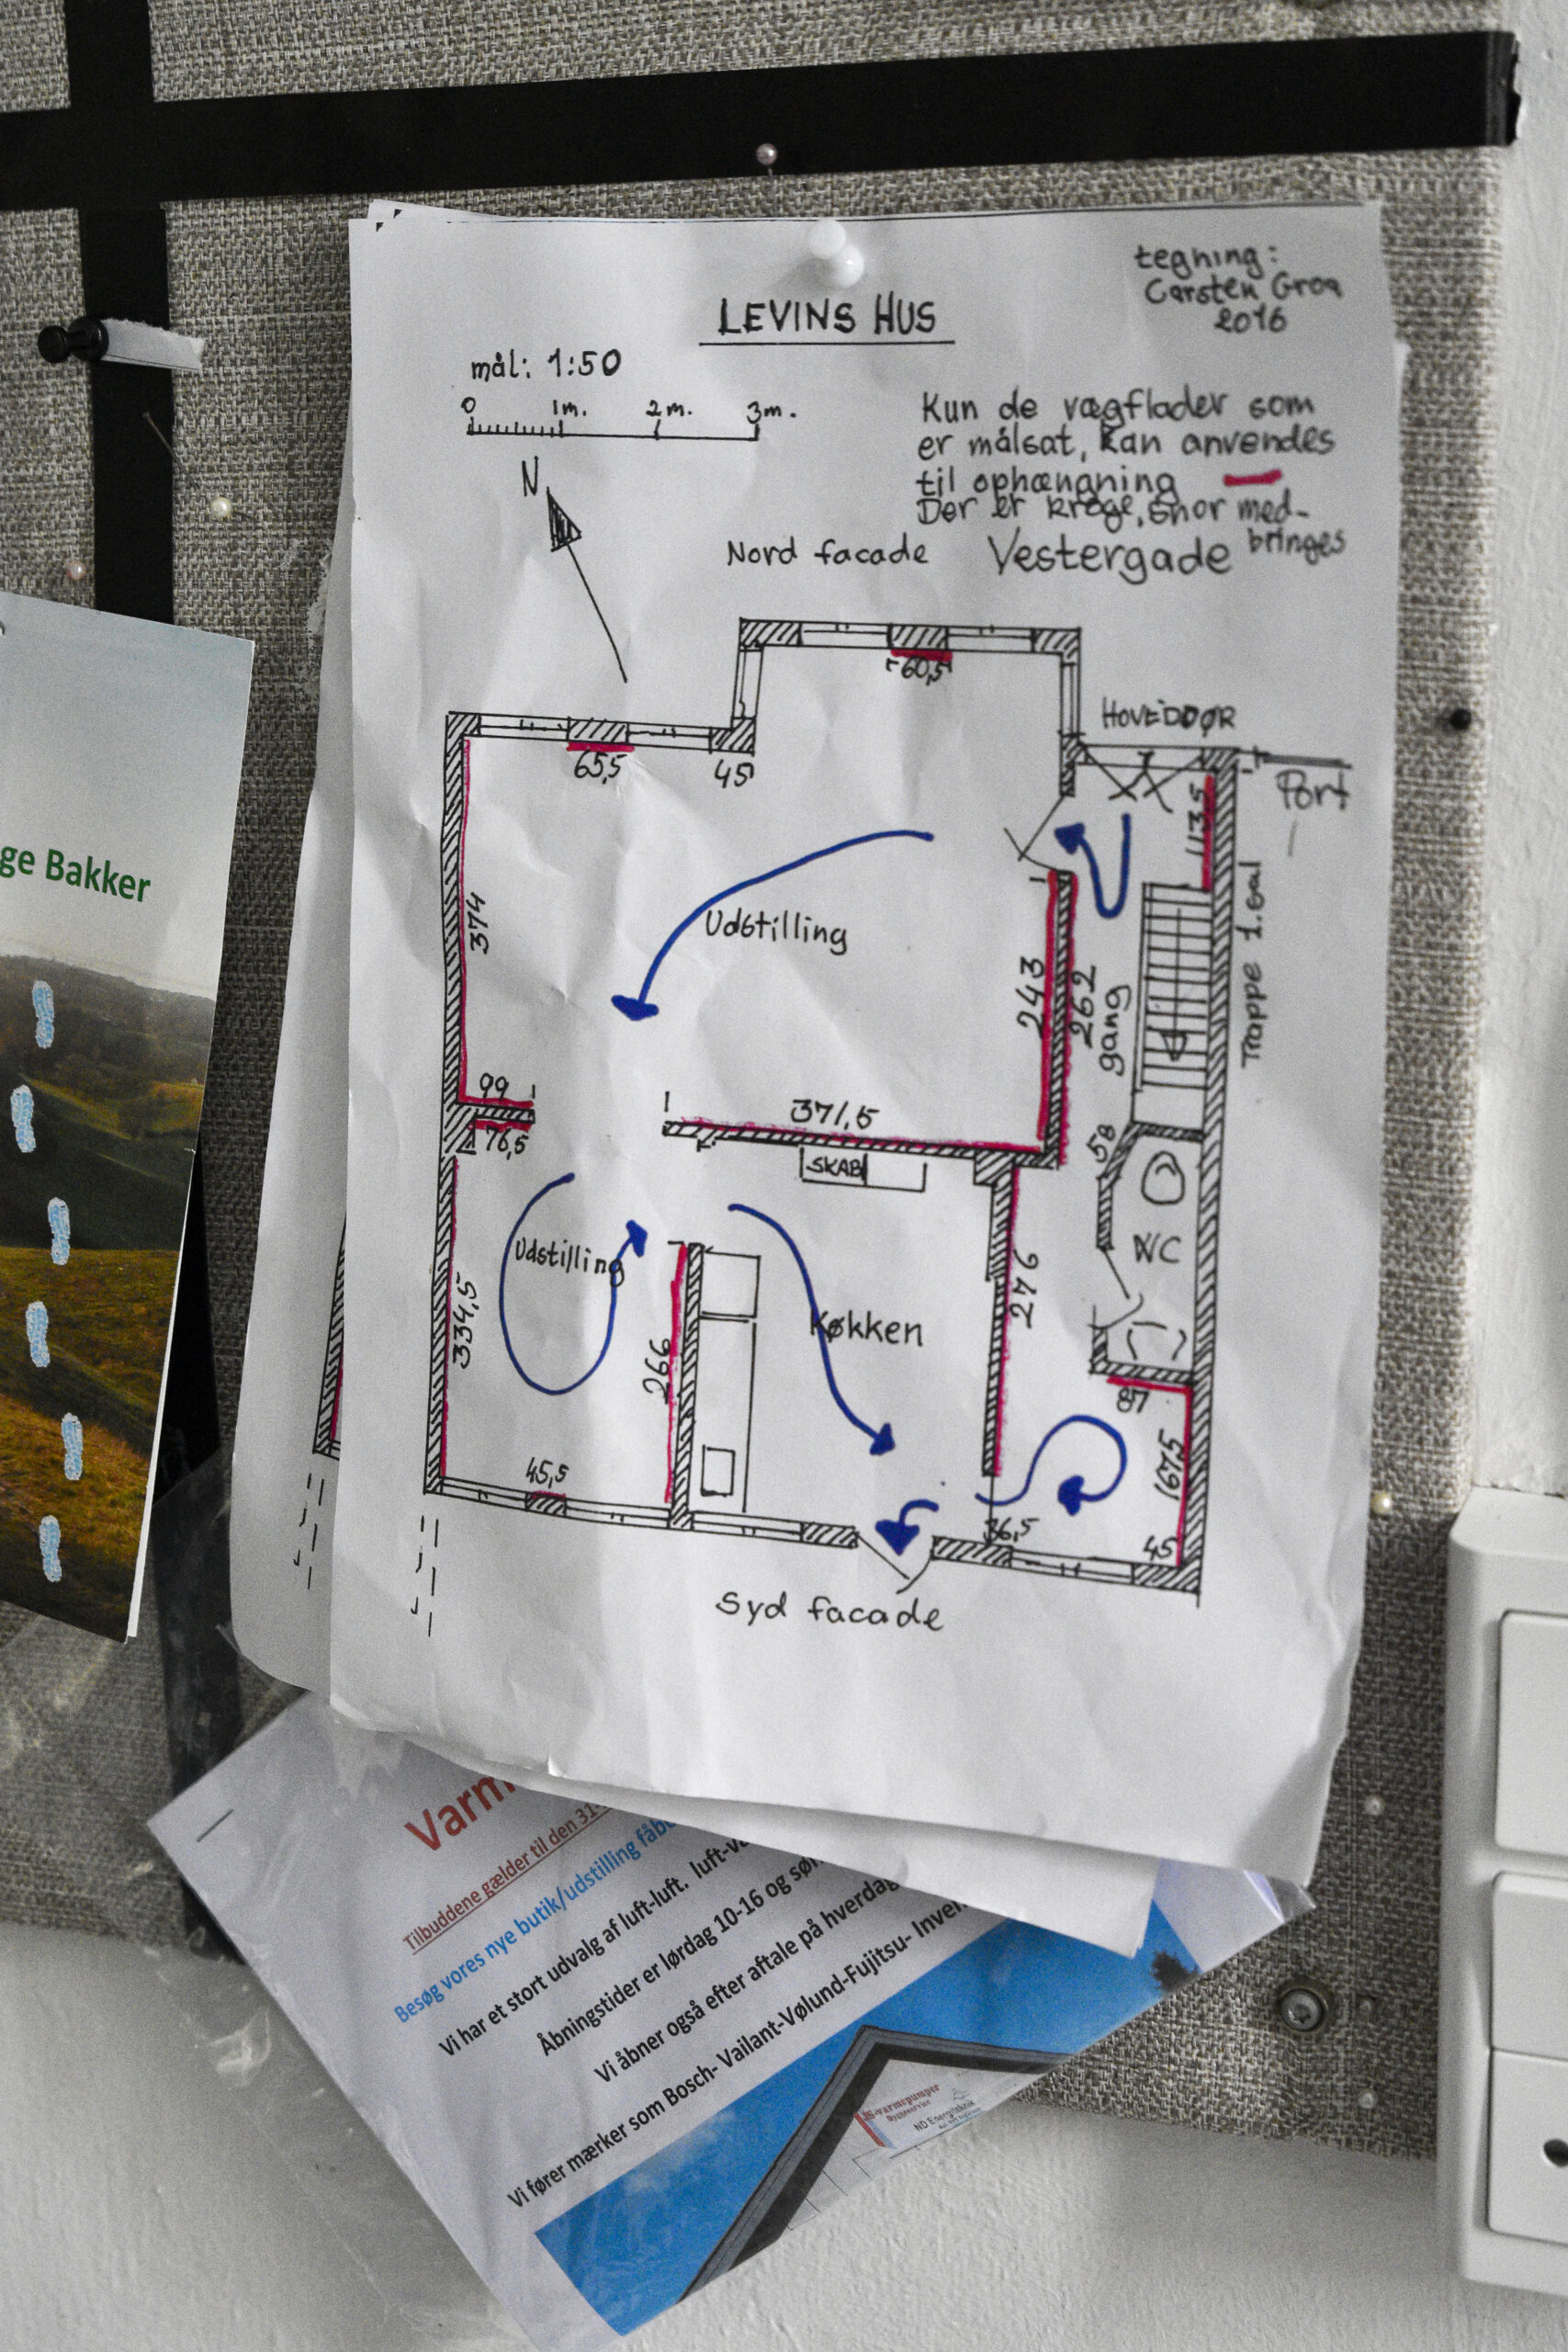 LEVINS HUS
tegning:
Carsten Groa
2016
mål: 1:50
0 1m. 2m. 3m.
N
Kun de vægflader som
er målsat, kan anvendes
til ophængning
Der er kroge, snor med-
bringes
Nord facade
Vestergade
60,5
HOVEDDØR
65,5
45
Port
113,5
374
Udstilling
243
262
gang
Trappe 1. sal
99
76,5
371,5
SKAB
58
WC
Udstilling
334,5
266
Køkken
276
87
167,5
45,5
36,5
45
Syd facade
ge Bakker
Varm
Tilbuddene gælder til den 31-
Besøg vores nye butik/udstilling fåb
Vi har et stort udvalg af luft-luft. luft-v
Åbningstider er lørdag 10-16 og søn
Vi åbner også efter aftale på hverdag
Vi fører mærker som Bosch- Vailant-Vølund-Fujitsu- Inver
JS-varmepumper
ND Energiteknik